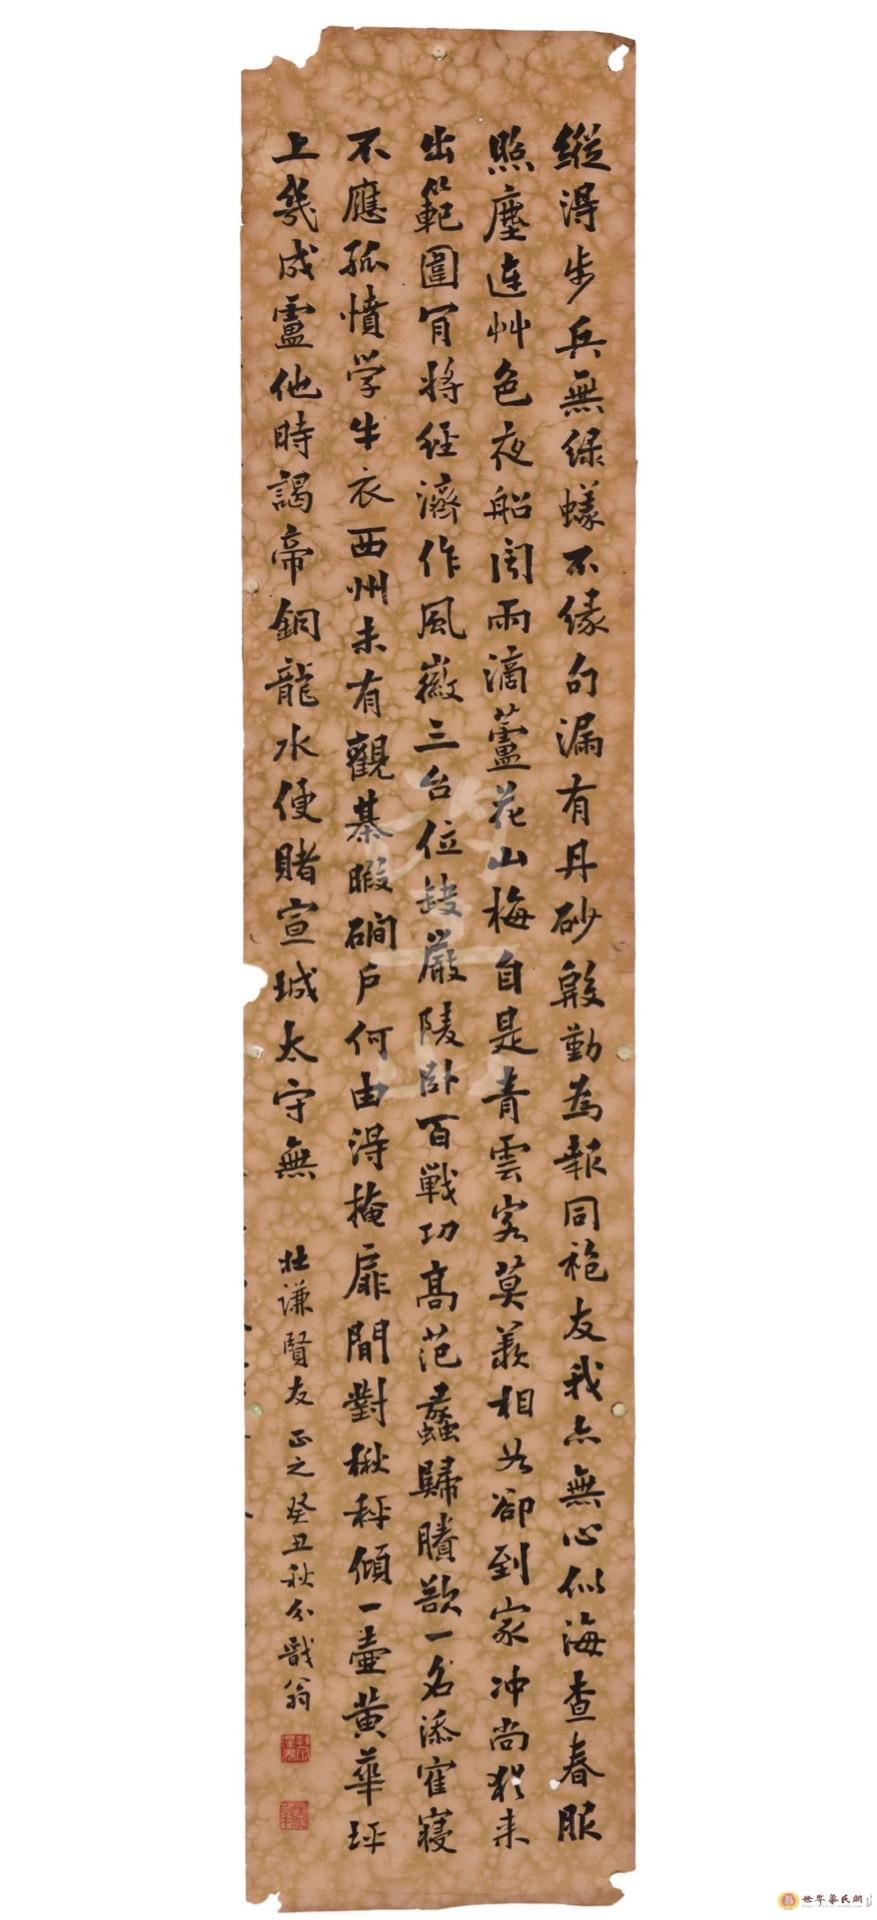 縱得步兵無緑蟻不緣句漏有丹砂殷勤為報同袍友我亦無心似海查春服
照塵連艸色夜船聞雨滴蘆花山梅自是青雲客莫羨相如卻到家冲尚猶来
出範圍肎将経濟作風徽三台位缺嚴陵卧百戦功高范蠡歸賸欲一名添寉寝
不應孤憤学牛衣西州未有觀棊暇磵戶何由得掩扉閒對楸枰傾一壷黄華坪
上幾成盧他時謁帝銅龍水便賭宣城太守無
壯謙賢友正之癸丑秋分戩翁